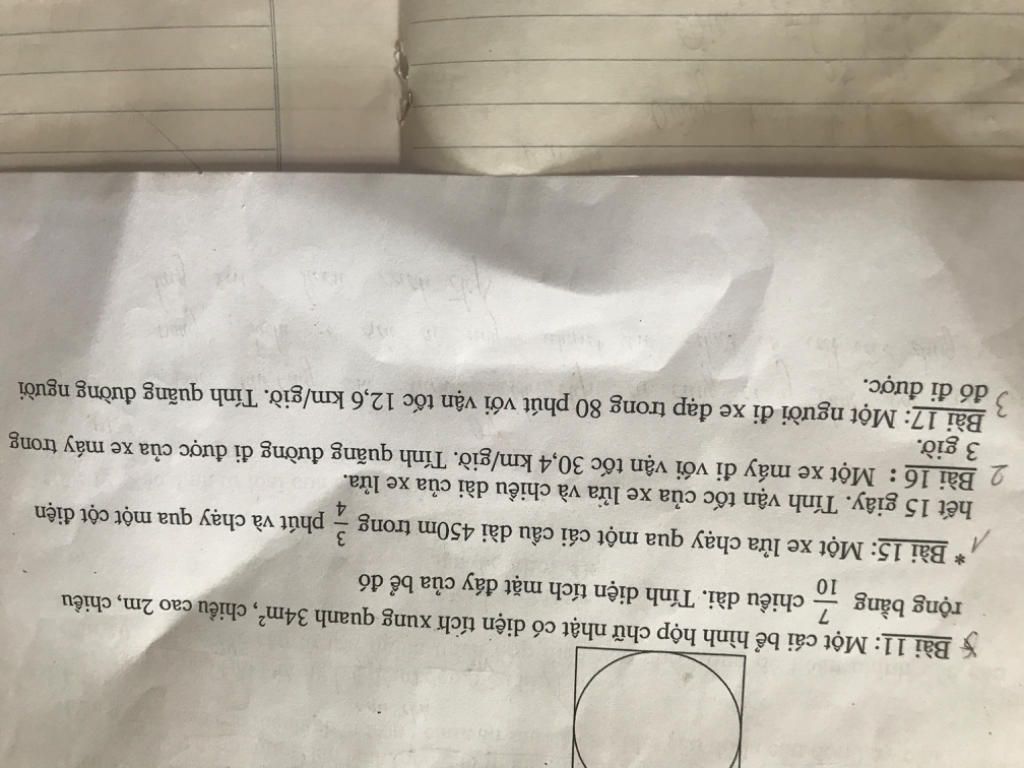 Bài 11: Một cái bể hình hộp chữ nhật có diện tích xung quanh 34m², chiều cao 2m, chiều
rộng bằng 7/10 chiều dài. Tính diện tích mặt đáy của bể đó
1 * Bài 15: Một xe lửa chạy qua một cái cầu dài 450m trong 3/4 phút và chạy qua một cột điện
hết 15 giây. Tính vận tốc của xe lửa và chiều dài của xe lửa.
2 Bài 16 : Một xe máy đi với vận tốc 30,4 km/giờ. Tính quãng đường đi được của xe máy trong
3 giờ.
3 Bài 17: Một người đi xe đạp trong 80 phút với vận tốc 12,6 km/giờ. Tính quãng đường người
đó đi được.